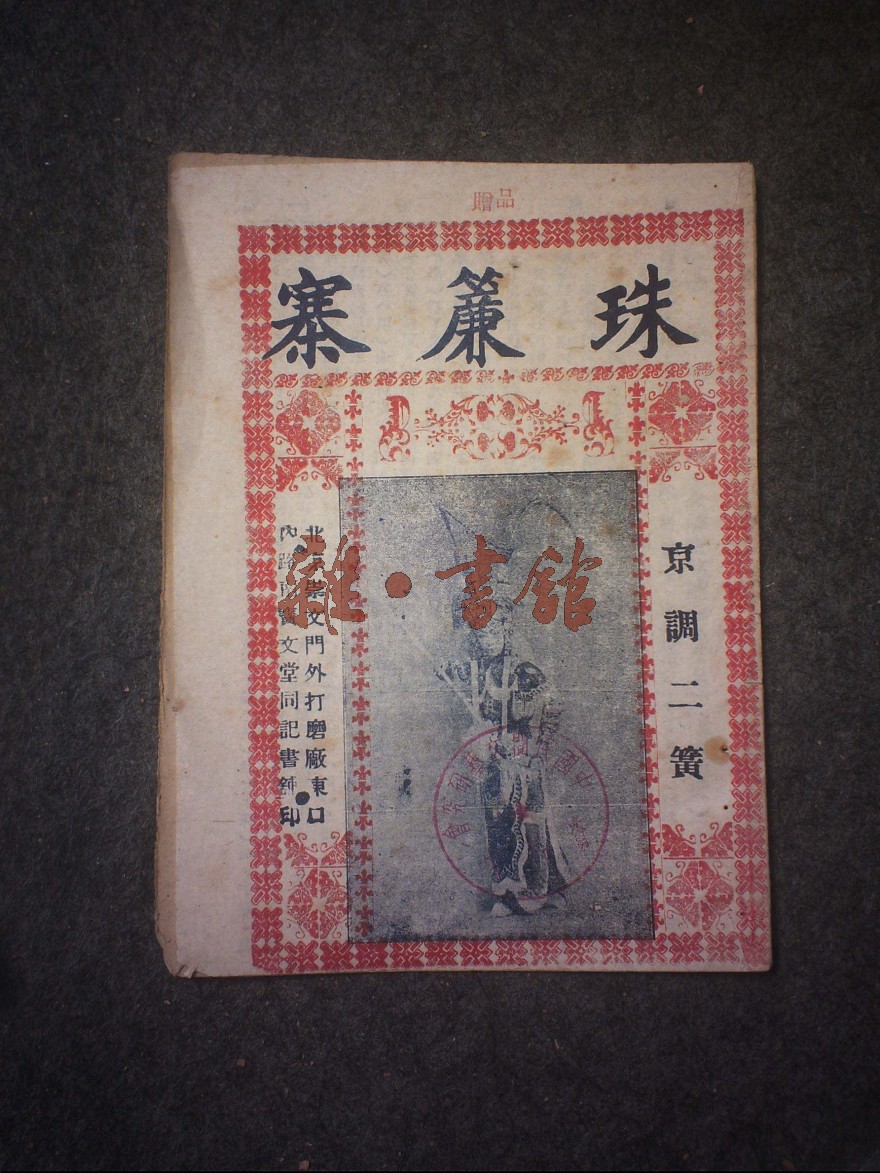 贈品
珠簾寨
京調二簧
北京崇文門外打磨廠東口
內路南寶文堂同記書鋪印
雜·書館